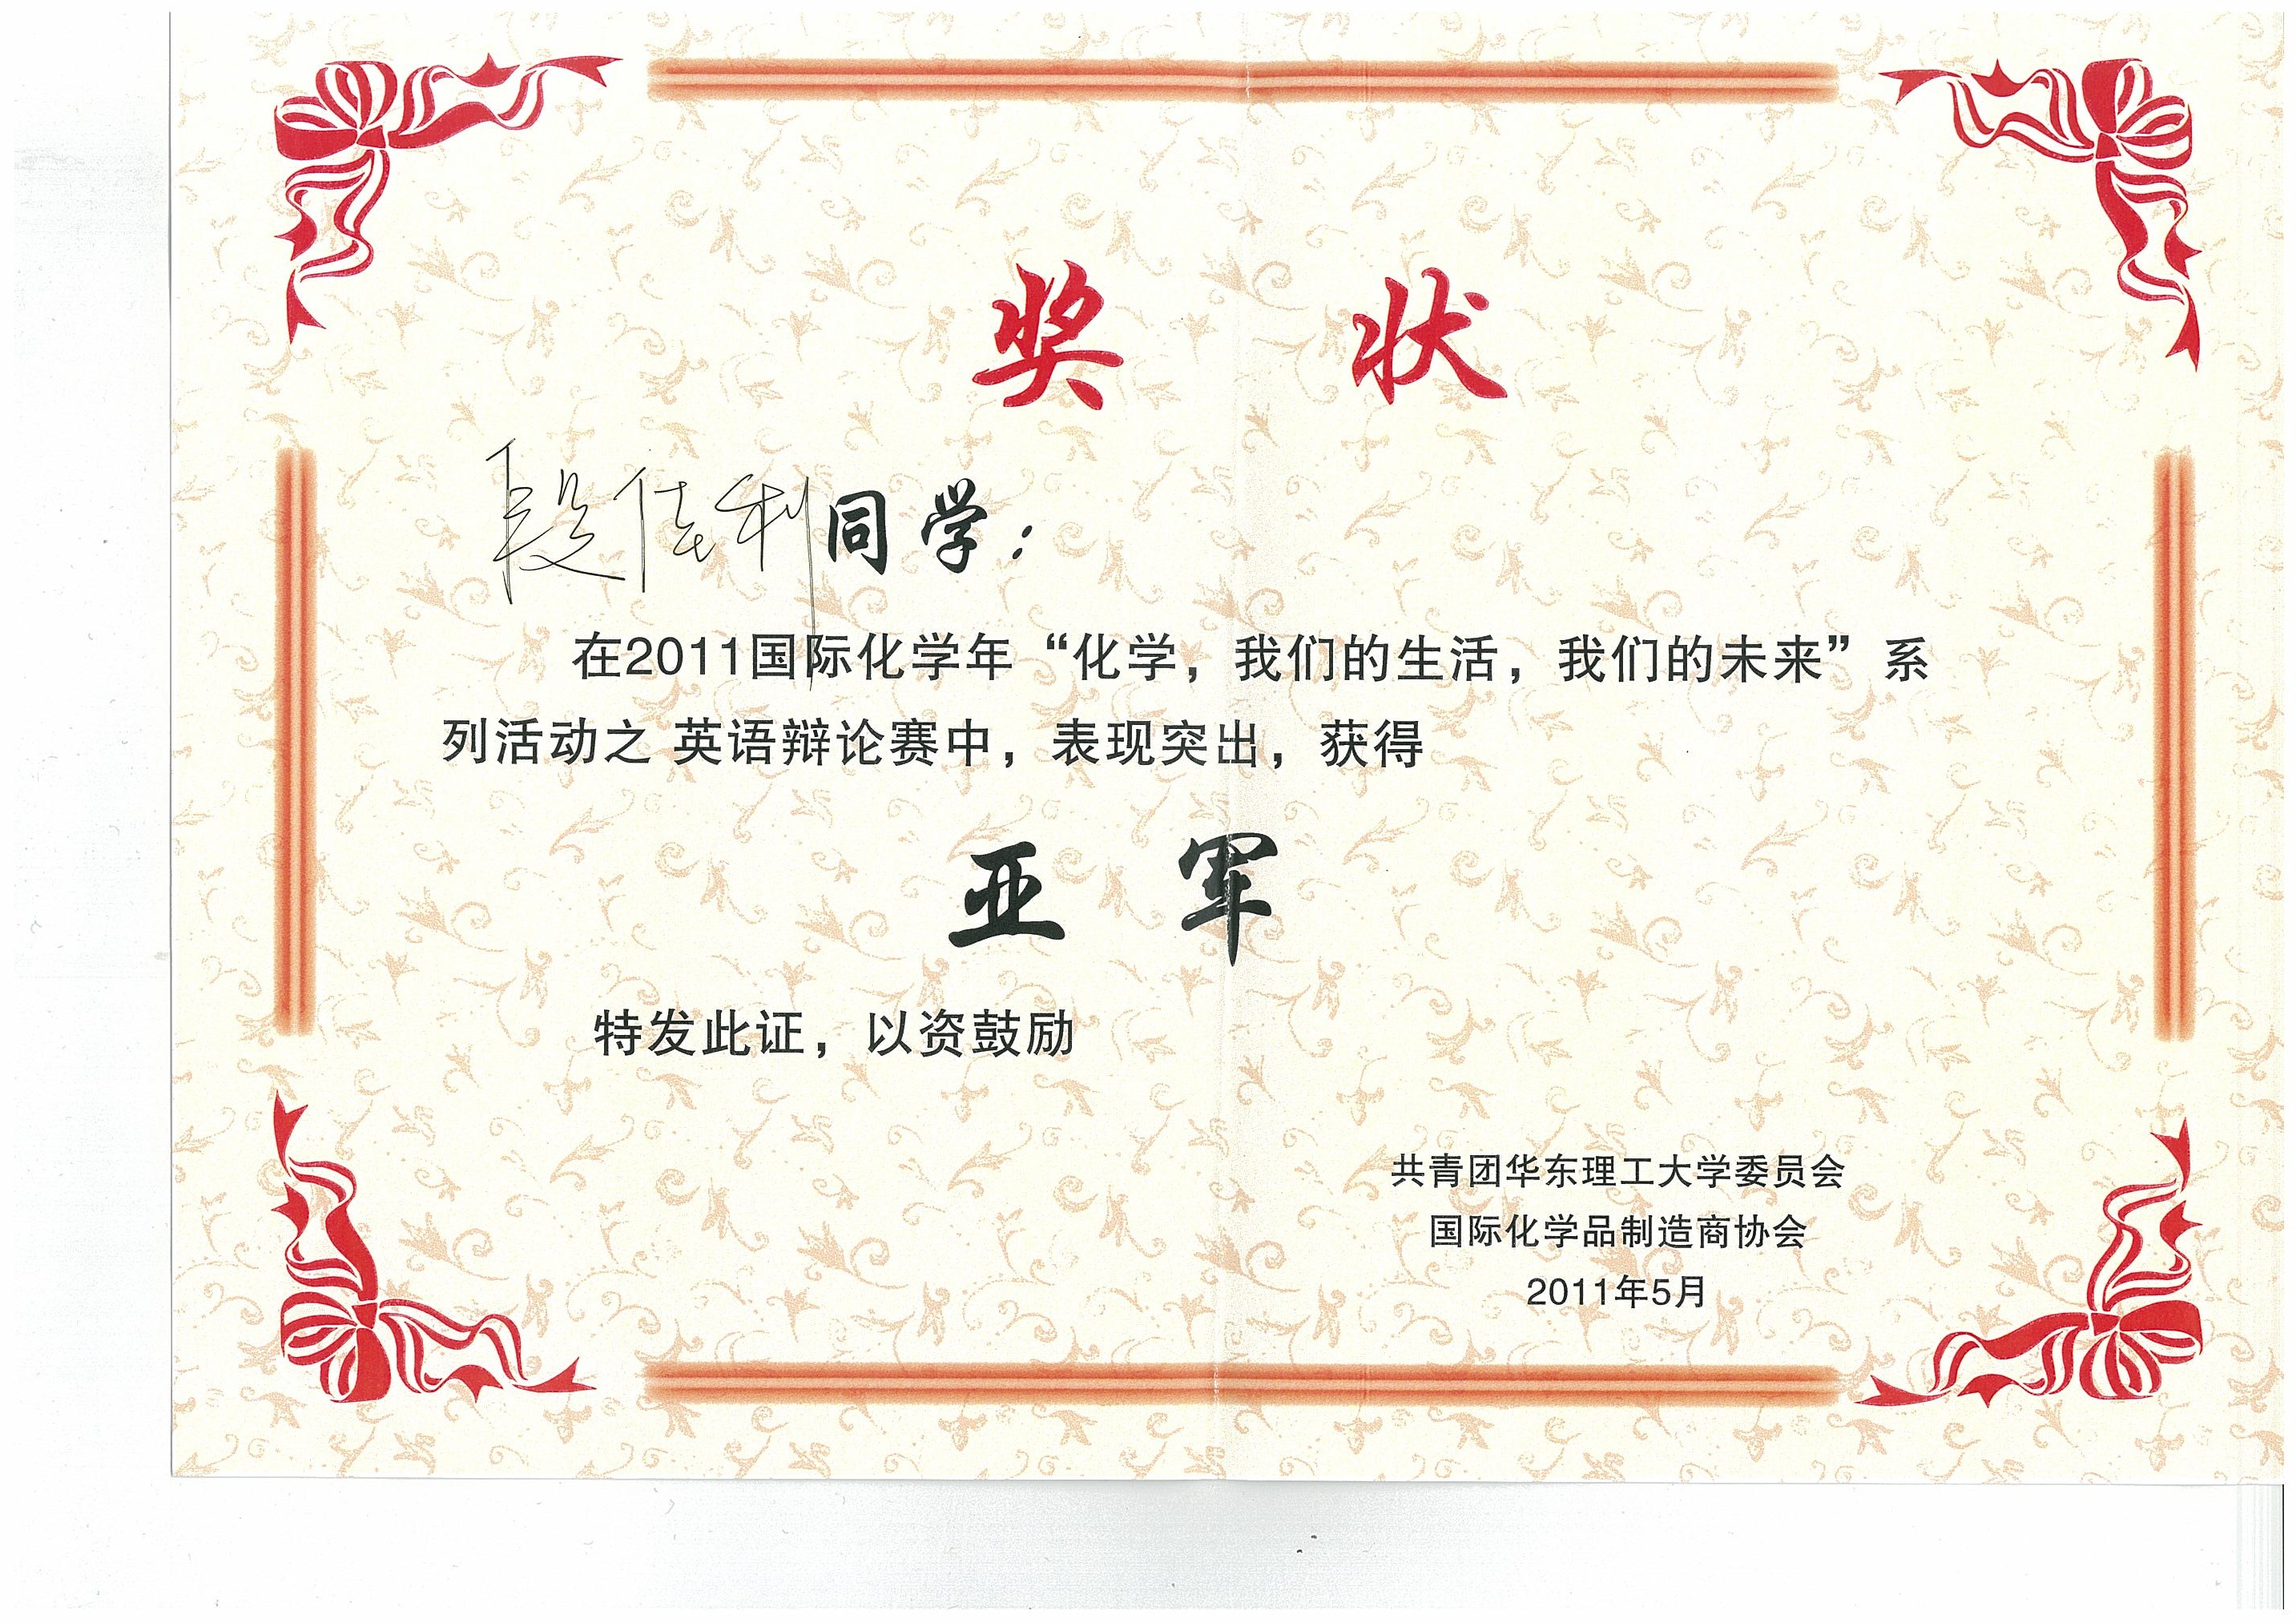 奖状
段佳利同学：
在2011国际化学年“化学，我们的生活，我们的未来”系
列活动之 英语辩论赛中，表现突出，获得
亚军
特发此证，以资鼓励
共青团华东理工大学委员会
国际化学品制造商协会
2011年5月